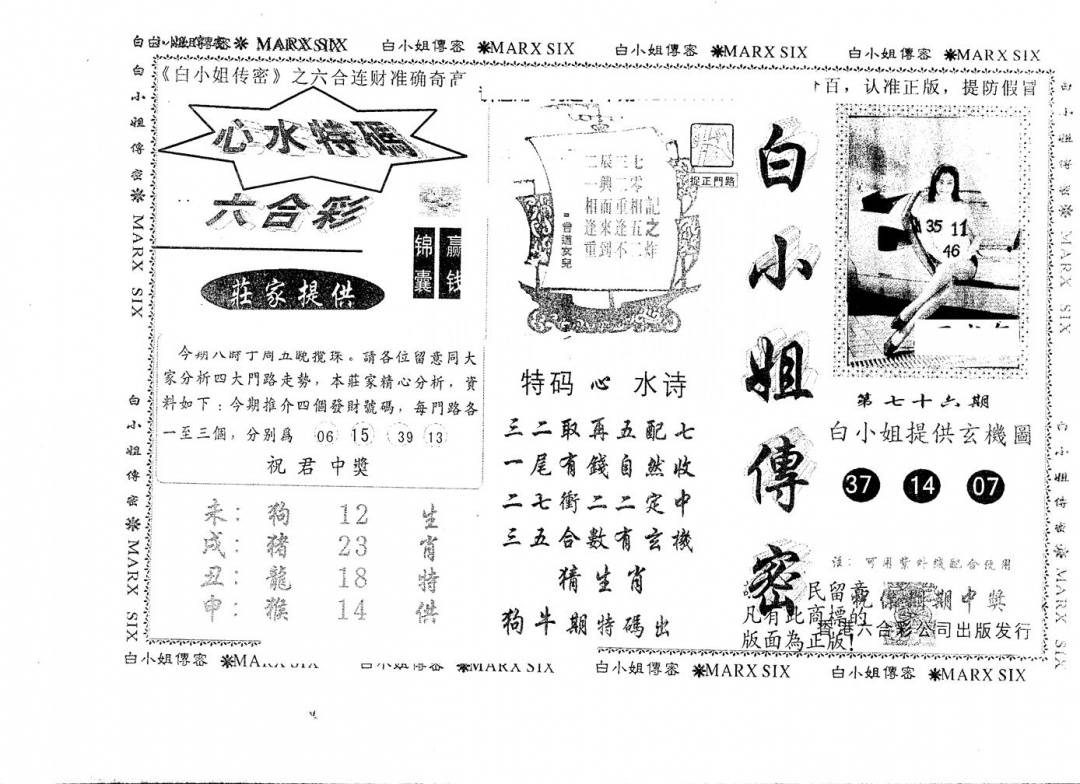 白小姐傳密 ※ MARX SIX 白小姐傳密 ※MARX SIX 白小姐傳密 ※MARX SIX 白小姐傳密 ※MARX SIX
《白小姐传密》之六合连财准确奇高
百，认准正版，提防假冒
白小姐傳密※ MARX SIX
白小姐傳密※ MARX SIX
心水特碼
六合彩
锦囊
赢钱
莊家提供
今期八時丁周五晚攪珠。請各位留意同大
家分析四大門路走勢，本莊家精心分析，資
料如下：今期推介四個發財號碼，每門路各
一至三個，分别爲 06 15 39 13
祝君中獎
未：狗 12 生
戌：猪 23 肖
丑：龍 18 特
申：猴 14 供
二辰三七
一興二零
相面重相記
逢來逢五之
重到不二炸
曾道女兒
捉正門路
特码心水诗
三二取再五配七
一尾有錢自然收
二七衝二二定中
三五合數有玄機
猜生肖
狗牛期特碼出
白小姐傳密
35 11
46
第七十六期
白小姐提供玄機圖
37 14 07
注：可用紫外线配合使用
民留意
祝你期期中獎
凡有此商標的
香港六合彩公司出版发行
版面為正版！
白小姐傳密※ MARX SIX
白小姐傳密※ MARX SIX
白小姐傳密 ※MARX SIX 白小姐傳密 ※MARX SIX 白小姐傳密 ※MARX SIX 白小姐傳密 ※MARX SIX